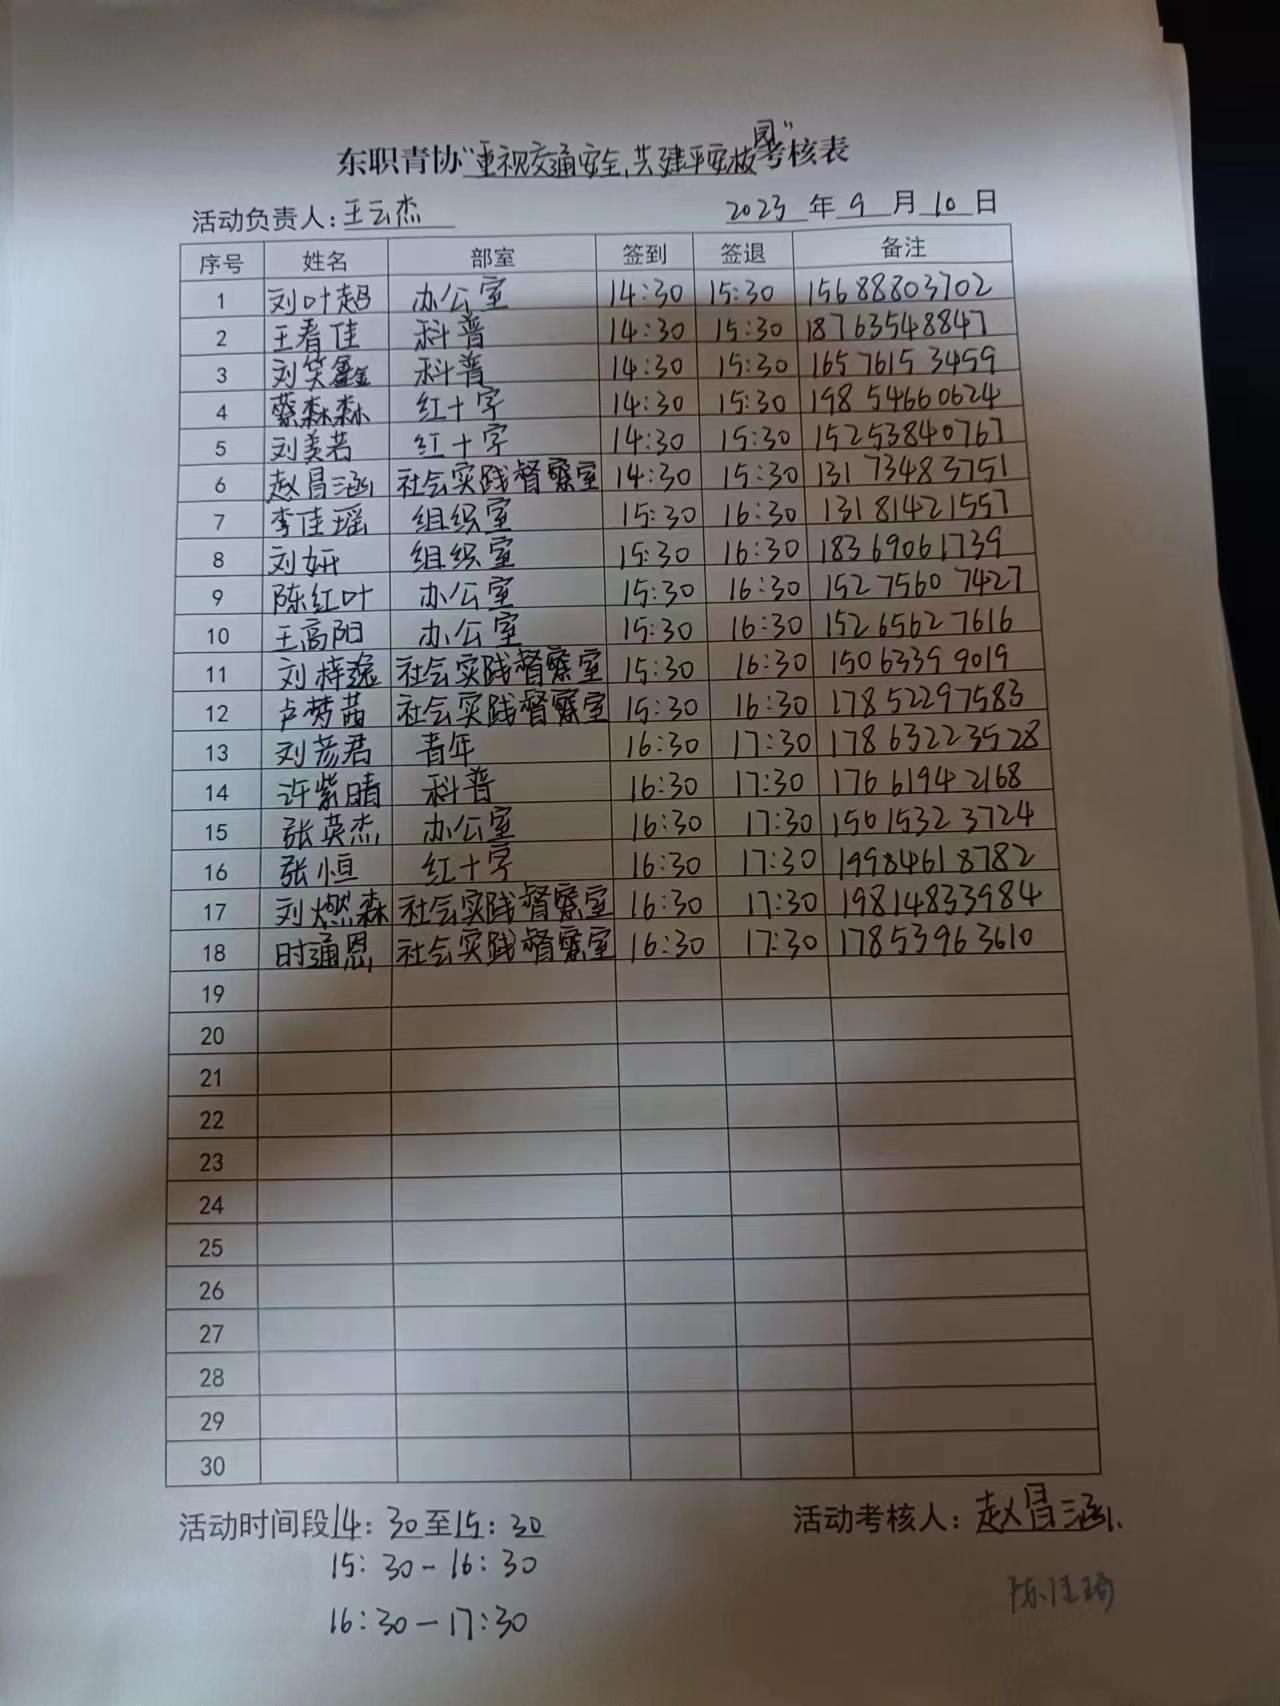 东职青协“重视交通安全,共建平安校园”考核表
活动负责人:王云杰 2023年9月10日
序号 姓名 部室 签到 签退 备注
1 刘叶超 办公室 14:30 15:30 15688803702
2 王春佳 科普 14:30 15:30 18763548847
3 刘笑鑫 科普 14:30 15:30 16576153459
4 蔡森森 红十字 14:30 15:30 19854660624
5 刘美若 红十字 14:30 15:30 15253840767
6 赵昌涵 社会实践督察室 14:30 15:30 13173483751
7 李佳瑶 组织室 15:30 16:30 13181421557
8 刘妍 组织室 15:30 16:30 18369061739
9 陈红叶 办公室 15:30 16:30 15275607427
10 王高阳 办公室 15:30 16:30 15265627616
11 刘梓逸 社会实践督察室 15:30 16:30 15063399019
12 卢梦茜 社会实践督察室 15:30 16:30 17852297583
13 刘彦君 青年 16:30 17:30 17863223528
14 许紫晴 科普 16:30 17:30 17661942168
15 张英杰 办公室 16:30 17:30 15615323724
16 张恒 红十字 16:30 17:30 19984618782
17 刘燃森 社会实践督察室 16:30 17:30 19814833984
18 时通恩 社会实践督察室 16:30 17:30 17853963610
19
20
21
22
23
24
25
26
27
28
29
30
活动时间段14:30至15:30 活动考核人:赵昌涵.
15:30-16:30
16:30-17:30